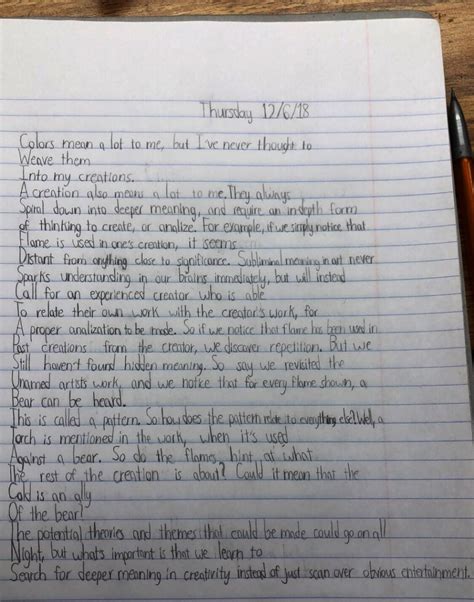 Thursday 12/6/18
Colors mean a lot to me, but I've never thought to
Weave them
Into my creations.
A creation also means a lot to me. They always
Spiral down into deeper meaning, and require an indepth form
of thinking to create, or analize. For example, if we simply notice that
Flame is used in one's creation, it seems
Distant from anything close to significance. Subliminal meaning in art never
Sparks understanding in our brains immediately, but will instead
Call for an experienced creator who is able
To relate their own work with the creator's work, for
A proper analization to be made. So if we notice that flame has been used in
Past creations from the creator, we discover repetition. But we
Still haven't found hidden meaning. So say we revisited the
Unamed artists work, and we notice that for every flame shown, a
Bear can be heard.
This is called a pattern. So how does the pattern relate to everything else? Well, a
Torch is mentioned in the work, when it's used
Against a bear. So do the flames hint at what
The rest of the creation is about? Could it mean that the
Cold is an ally
Of the bear?
The potential theories and themes that could be made could go on all
Night, but what's important is that we learn to
Search for deeper meaning in creativity instead of just scan over obvious entertainment.